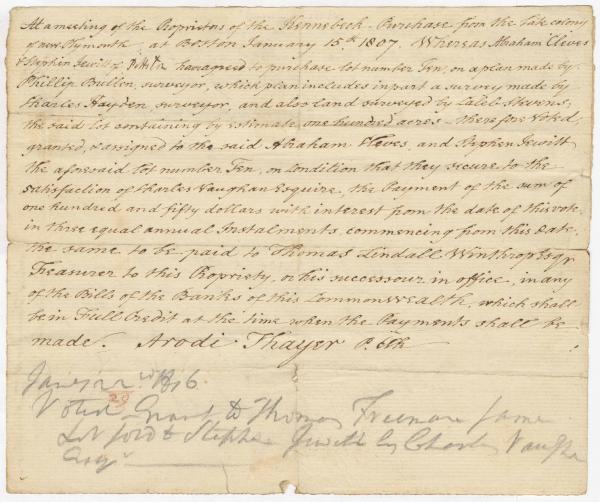 At a meeting of the Proprietors of the Kennebeck Purchase from the late colony
of new Plymouth, at Boston January 15th 1807. Whereas Abraham Cleves
& Stephen Jewitt of have agreed to purchase lot number Ten, on a plan made by
Phillip Bullen, surveyor, which plan includes in part a survey made by
Charles Hayden surveyor, and also land surveyed by Caleb Stevens,
the said lot containing by estimate one hundred acres therefore Voted,
granted, & assigned to the said Abraham Cleves, and Stephen Jewitt
the aforesaid lot number Ten, on condition that they secure to the
satisfaction of Charles Vaughan Esquire, the Payment of the sum of
one hundred and fifty dollars with interest from the date of this vote
in three equal annual Instalments, commencing from this date,
the same to be paid to Thomas Lindall Winthrop Esqr
Treasurer to this Propriety, or his successour in office, in any
of the Bills of the Banks of this Commonwealth, which shall
be in Full Credit at the time when the Payments shall be
made. Arodi Thayer P. Clk
Jany 22nd 1816.
29
Voted Grant to Thomas Freeman same
Lot sold to Stephen Jewitt by Charles Vaughan
Esqr